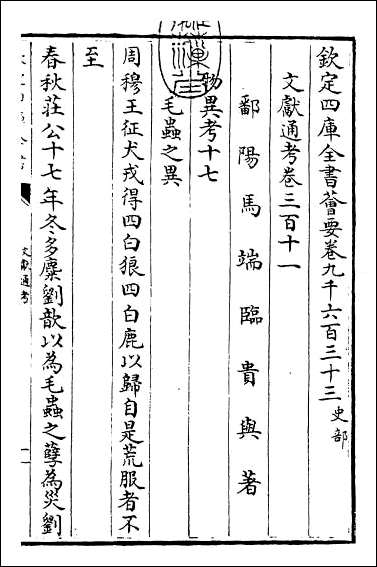 欽定四庫全書薈要卷九千六百三十三 史部
文獻通考卷三百十一
鄱陽馬端臨貴與著
物異考十七
毛蟲之異
周穆王征犬戎得四白狼四白鹿以歸自是荒服者不
至
春秋莊公十七年冬多麋劉歆以為毛蟲之孽為災劉
文獻通考
一